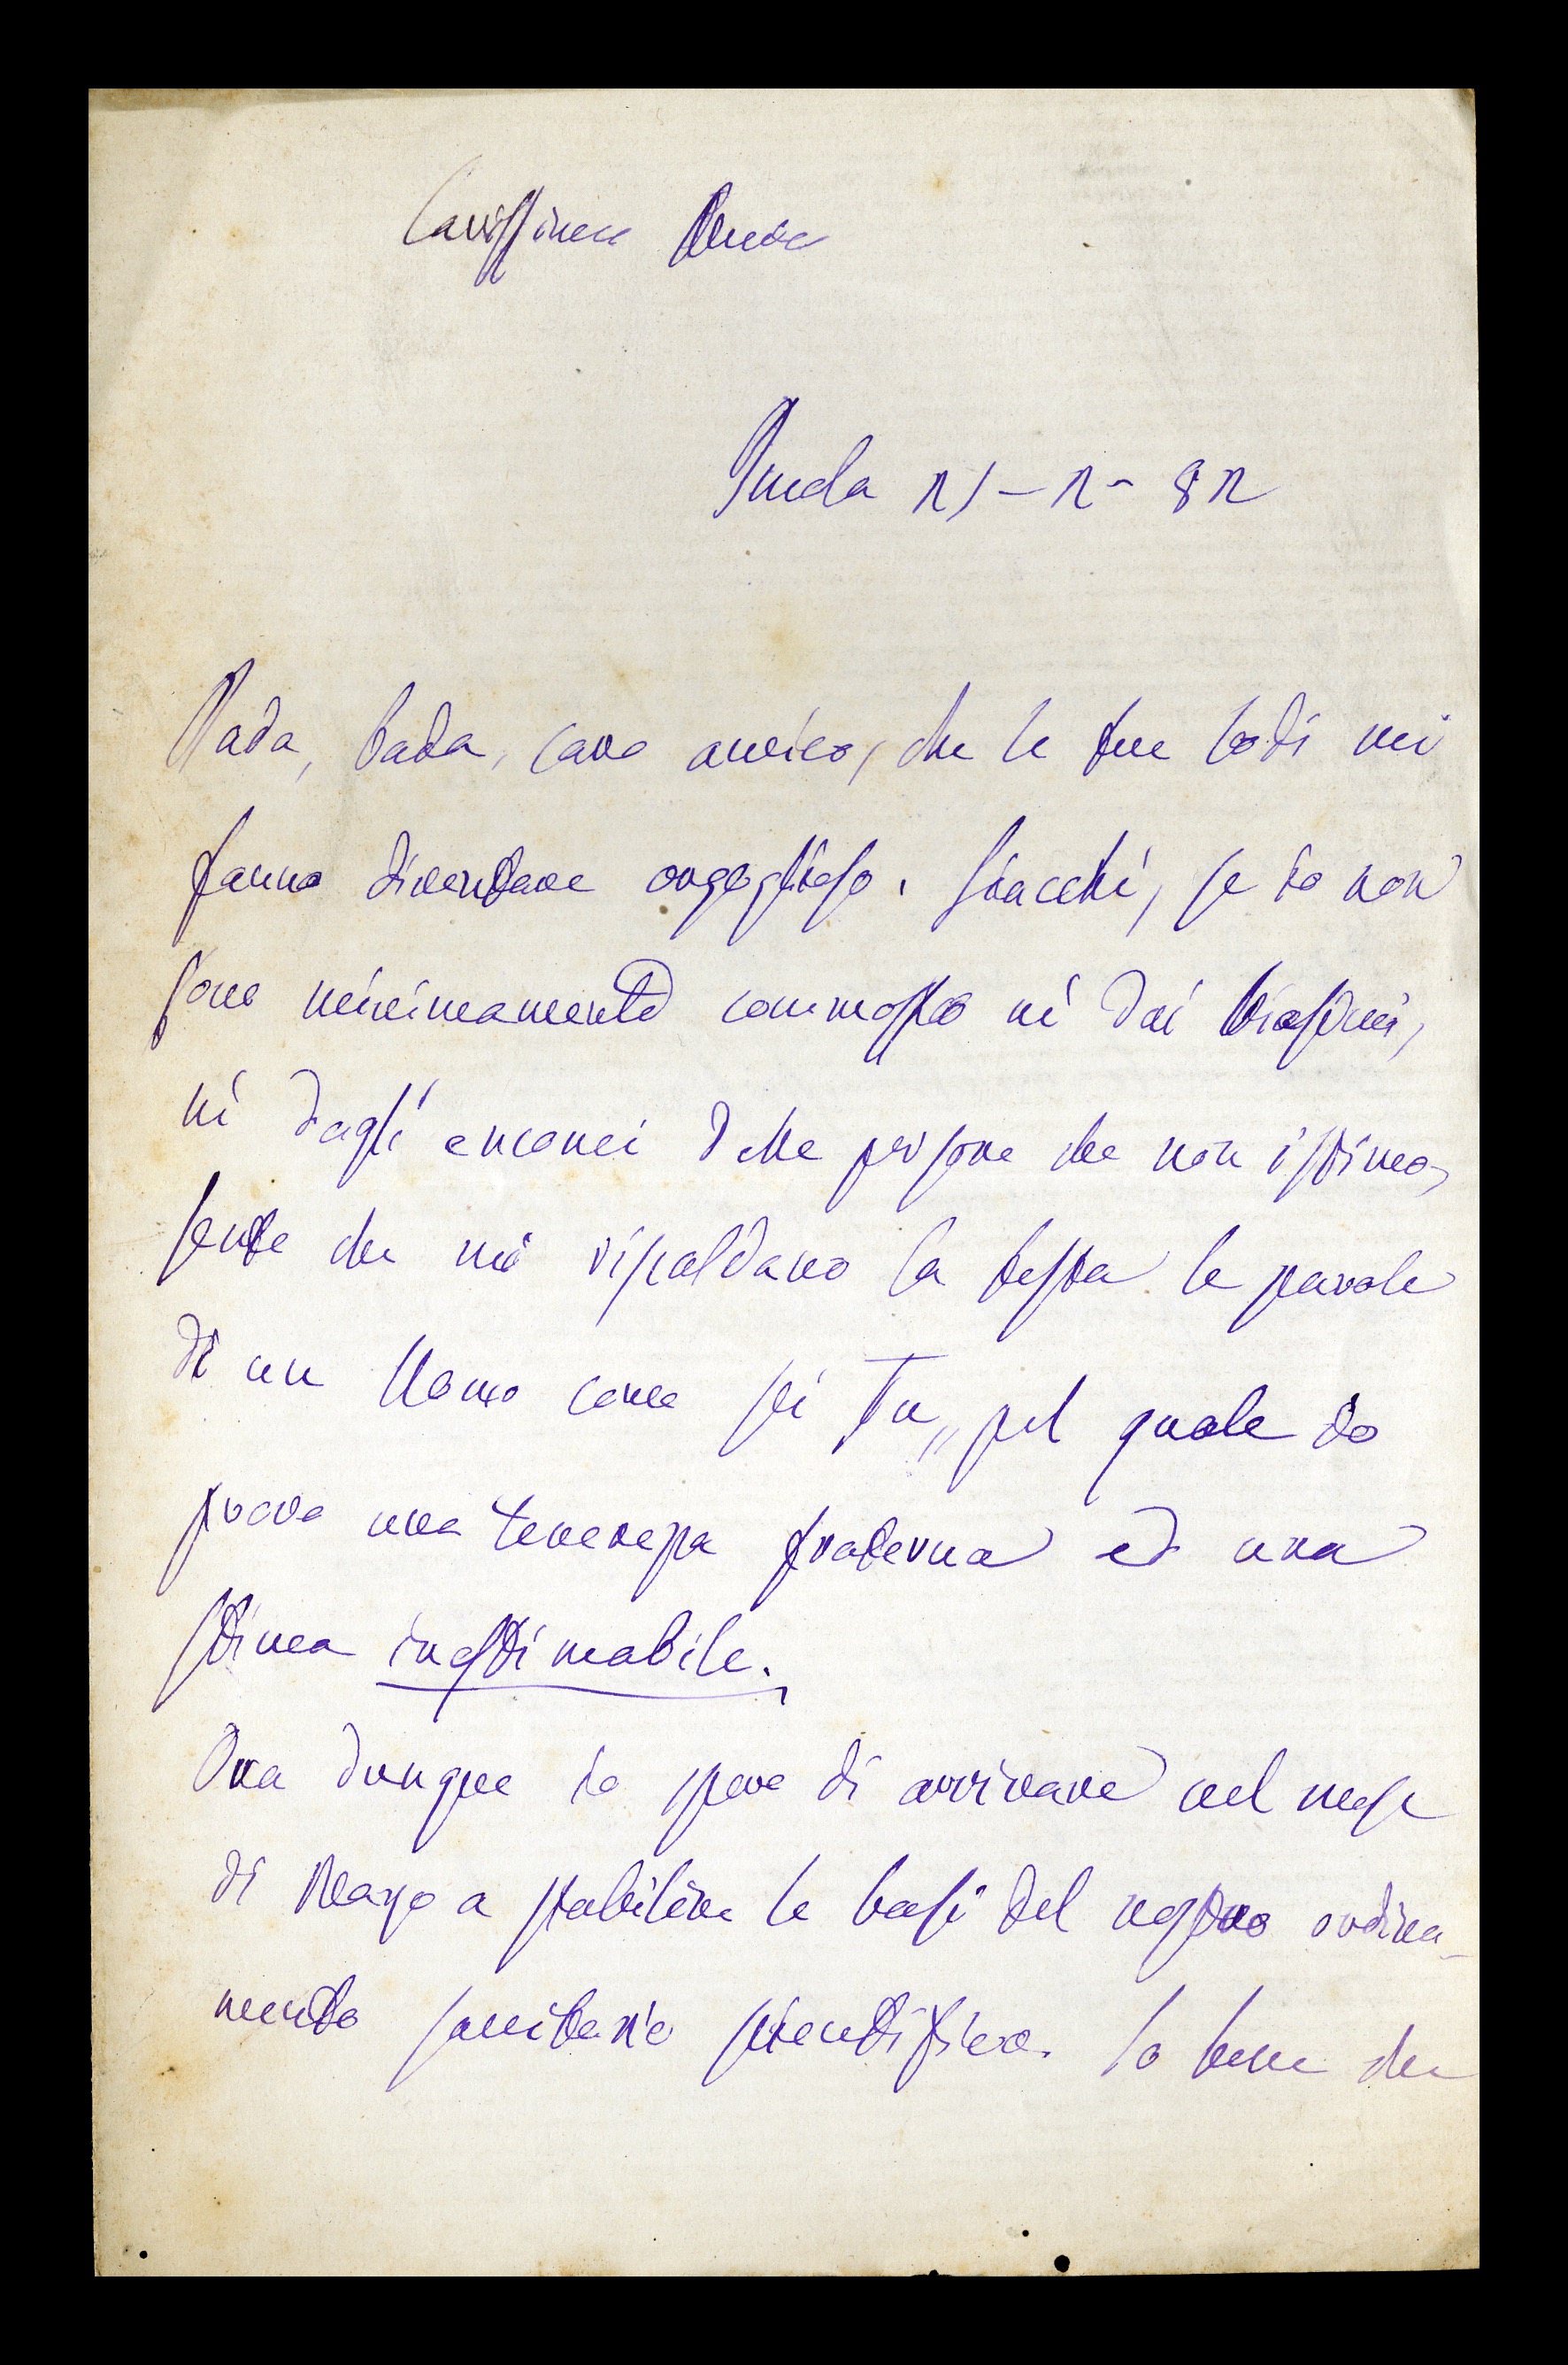 Carissimo Amico
Imola 21-2-82
Bada, bada, caro amico, che le tue lodi mi
fanno diventare orgoglioso. Giacchì, se io non
sono minimamente commosso nì dai biasimi,
nì dagli encomi delle persone che non istimo,
sento che mi riscaldano la testa le parole
di un Uomo come sei Tu, pel quale io
provo una tenerezza fraterna ed una
stima inestimabile.
Ora dunque io spero di arrivare nel mese
di Marzo a stabilire le basi del nostro ordina-
mento sanitario scientifico. So bene che